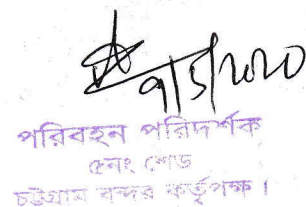 ৭/১/২০২০
পরিবহন পরিদর্শক
৫নং শেড
চট্টগ্রাম বন্দর কর্তৃপক্ষ।